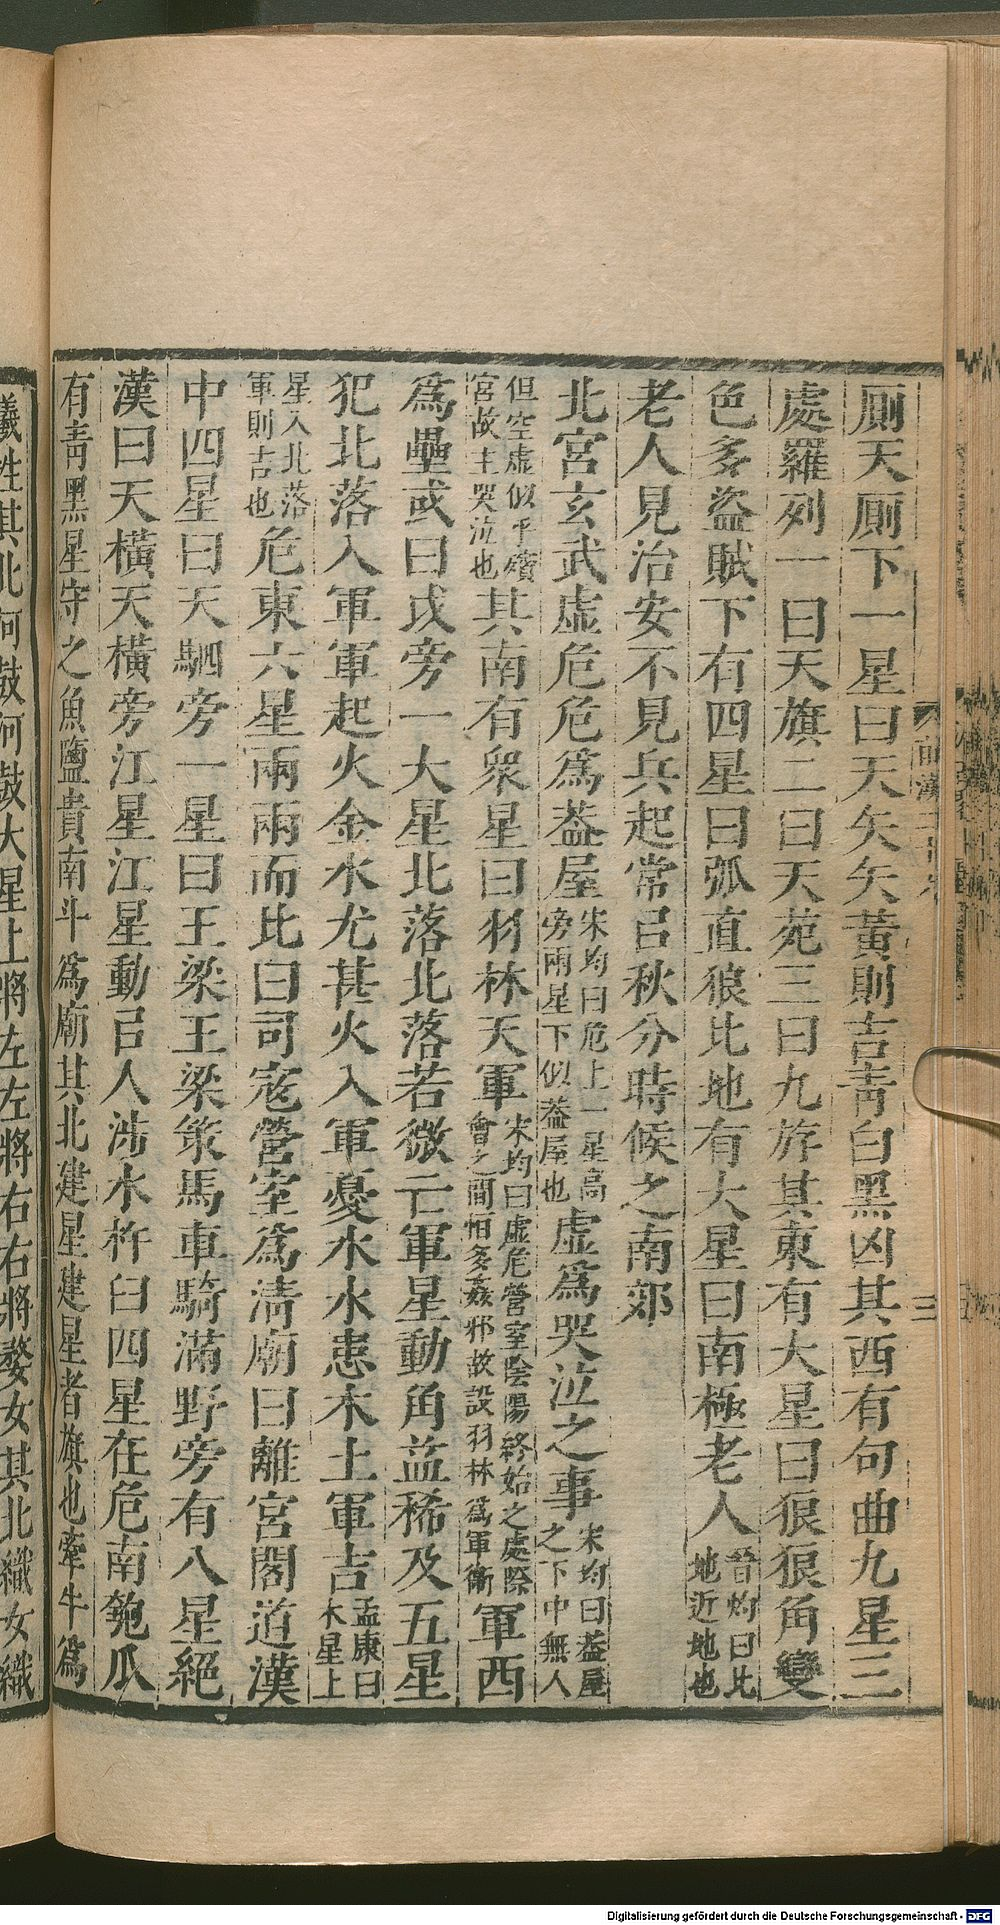 廁天廁下一星曰天矢矢黃則吉青白黑凶其西有句曲九星三
處羅列一曰天旗二曰天苑三曰九斿其東有大星曰狼狼角變
色多盜賊下有四星曰弧直狼比地有大星曰南極老人晉灼曰比地近地也
老人見治安不見兵起常㠯秋分時候之南郊
北宮玄武虛危危爲蓋屋宋均曰危上一星高旁兩星下似蓋屋也虛爲哭泣之事宋均曰蓋屋之下中無人
但空虛似乎殯宮故主哭泣也其南有衆星曰羽林天軍宋均曰虛危營室陰陽終始之處際會之間恒多姦邪故設羽林爲軍衞軍西
爲壘或曰戉旁一大星北落北落若微亡軍星動角益稀及五星
犯北落入軍軍起火金水尤甚火入軍憂水水患木土軍吉孟康曰木星上
星入北落軍則吉也危東六星兩兩而比曰司寇營室爲淸廟曰離宮閣道漢
中四星曰天駟旁一星曰王梁王梁策馬車騎滿野旁有八星絕
漢曰天橫天橫旁江星江星動㠯人涉水杵臼四星在危南匏瓜
有青黑星守之魚鹽貴南斗爲廟其北建星建星者旗也牽牛爲
犧牲其北河鼓河鼓大星上將左左將右右將婺女其北織女織
前漢
三
Digitalisierung gefördert durch die Deutsche Forschungsgemeinschaft - DFG